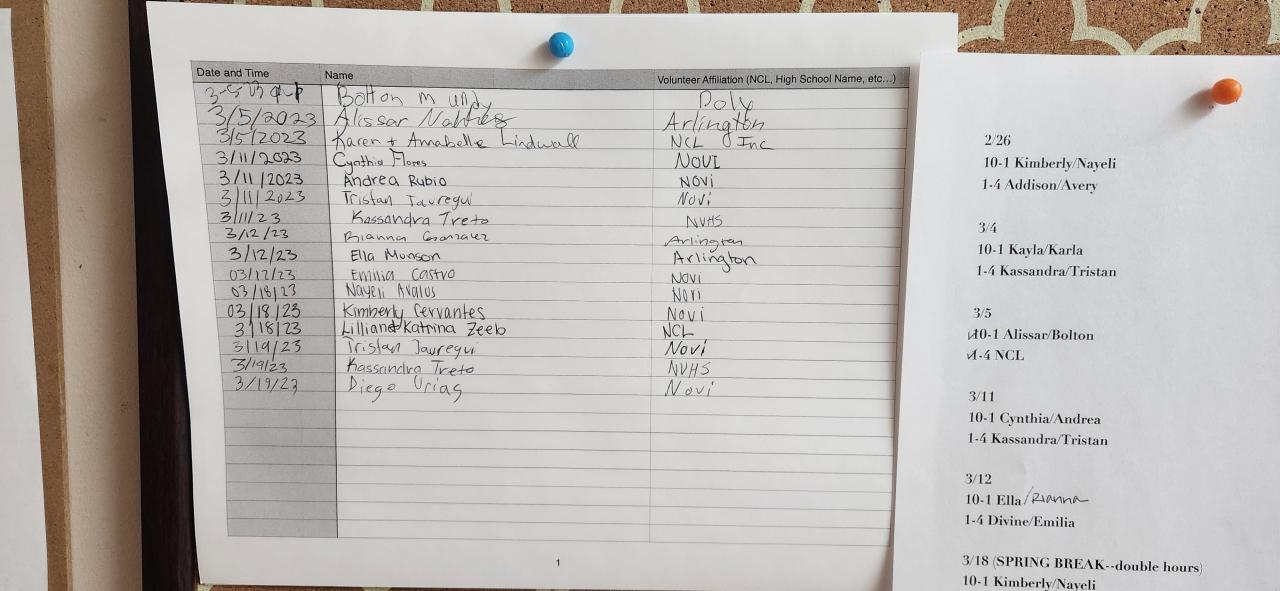 Date and Time Name Volunteer Affiliation (NCL, High School Name, etc...)
Bolton Mundy Poly
3/5/2023 Alissar Poly Arlington
3/5/2023 Karen + Annabelle Lindwall NCL Inc
3/11/2023 Cynthia Flores NOVI
3/11/2023 Andrea Rubio NOVi
3/11/2023 Tristan Jauregui Novi
3/11/23 Kassandra Treto NVHS
3/12/23 Rianna Gonzalez Arlington
3/12/23 Ella Munson Arlington
03/12/23 Emilia Castro Novi
03/18/23 Nayeli Avalos Novi
03/18/23 Kimberly Cervantes Novi
3/18/23 Lillian + Katrina Zeeb NCL
3/19/23 Tristan Jauregui Novi
3/19/23 Kassandra Treto NVHS
3/19/23 Diego Urias Novi
1
2/26
10-1 Kimberly/Nayeli
1-4 Addison/Avery
3/4
10-1 Kayla/Karla
1-4 Kassandra/Tristan
3/5
10-1 Alissar/Bolton
1-4 NCL
3/11
10-1 Cynthia/Andrea
1-4 Kassandra/Tristan
3/12
10-1 Ella/Rianna
1-4 Divine/Emilia
3/18 (SPRING BREAK--double hours)
10-1 Kimberly/Nayeli